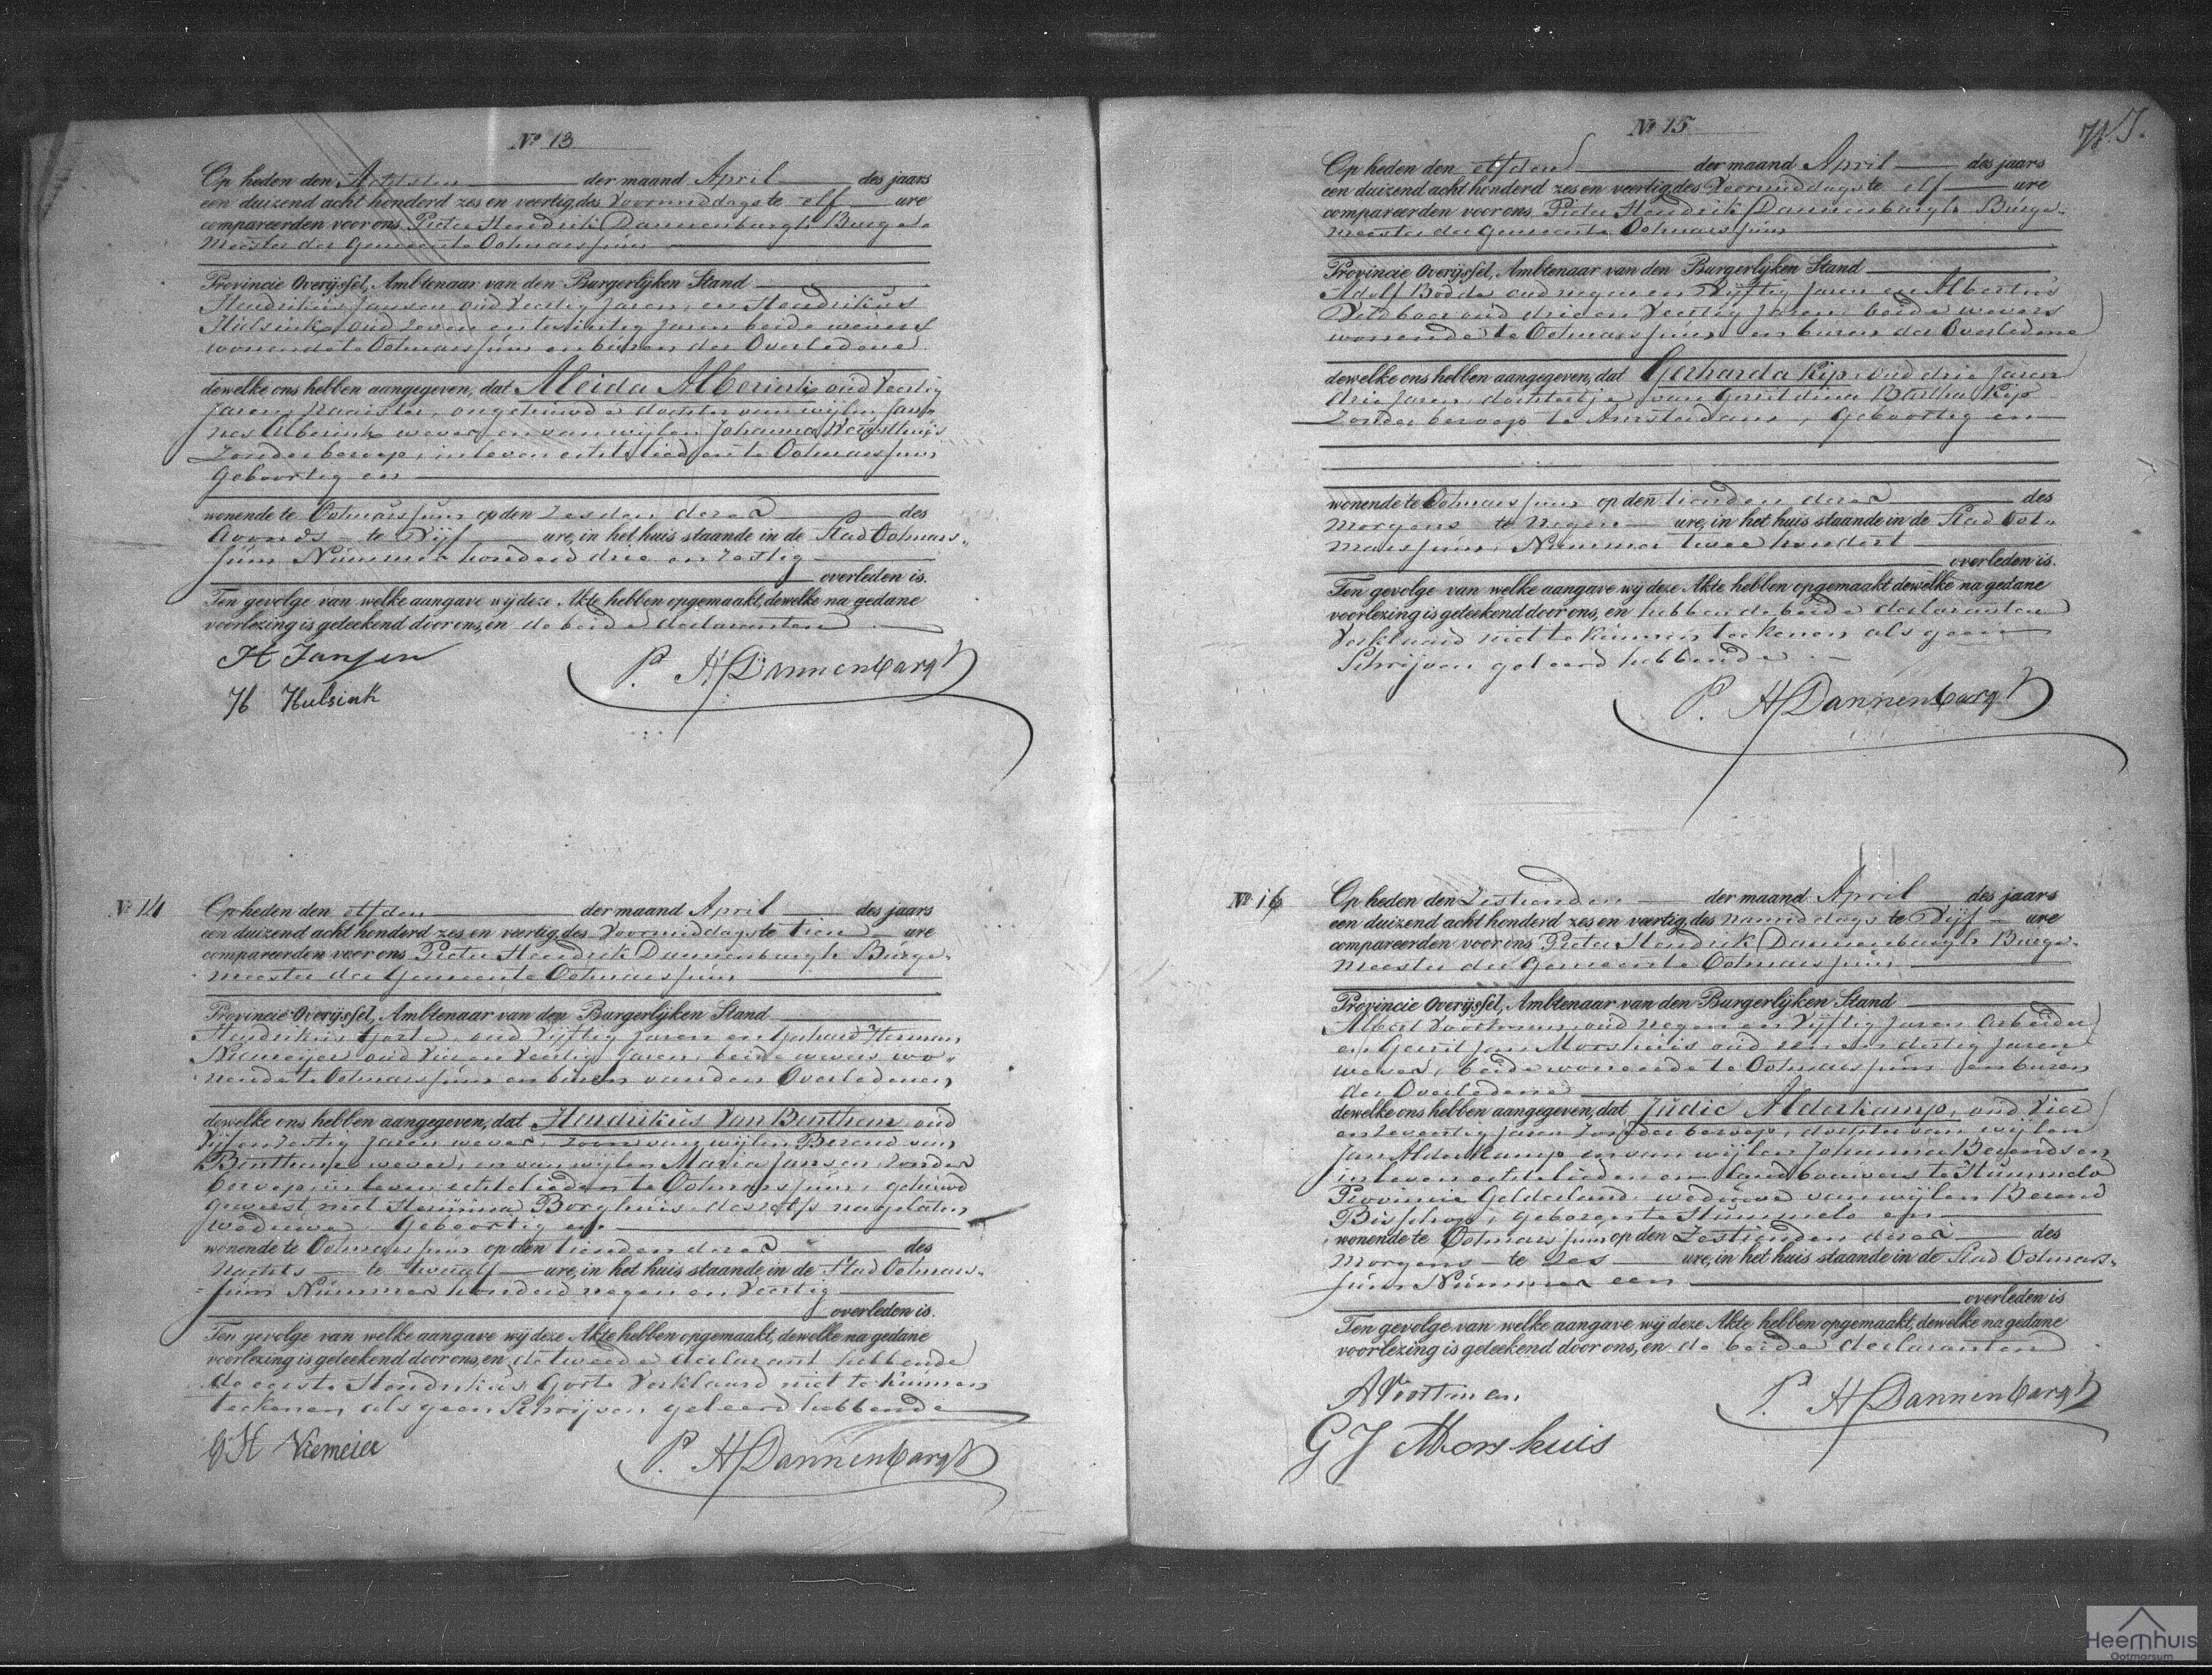 Nº 13
Op heden den Achtsten der maand April des jaars
een duizend acht honderd zes en veertig des Voormiddags te elf ure
compareerden voor ons Pieter Hendrik Dannenbargh Burge-
meester der Gemeente Ootmarssum
Provincie Overijssel, Ambtenaar van den Burgerlijken Stand
Hendrikus Jansen oud Veertig Jaren, en Hendrikus
Hulsink oud zeven en twintig Jaren beide wevers
wonende te Ootmarssum en buren der Overledene
dewelke ons hebben aangegeven, dat Aleida Alberink oud Veertig
Jaren, Naaister, ongehuwde dochter van wijlen
Alberink wever, en van wijlen Johanna
Zonder beroep, in leven echtelieden te Ootmarssum
Geboortig en
wonende te Ootmarssum op den Zesden dezer des
Avonds te Vijf ure, in het huis staande in de Stad Ootmars-
sum Nummer honderd drie en zestig
overleden is.
Ten gevolge van welke aangave wij deze Akte hebben opgemaakt, dewelke na gedane
voorlezing is geteekend door ons, en de beide declaranten
H Jansen
P. H Dannenbargh
H Hulsink
Nº 14
Op heden den elfden der maand April des jaars
een duizend acht honderd zes en veertig des Voormiddags te tien ure
compareerden voor ons Pieter Hendrik Dannenbargh Burge-
meester der Gemeente Ootmarssum
Provincie Overijssel, Ambtenaar van den Burgerlijken Stand
Hendrikus Gorte, oud Vijftig Jaren en Gerhard Herman
Niemeijer oud Vier en Veertig Jaren, beide wevers wo-
nende te Ootmarssum en buren van den Overledenen
dewelke ons hebben aangegeven, dat Hendrikus Van Benthem oud
Vijf en Zestig Jaren wever, zoon van wijlen Berend van
Benthem wever, en van wijlen Maria Jansen zonder
beroep, in leven echtelieden te Ootmarssum, gehuwd
geweest met Hermina Borghuis deszelfs nagelaten
weduwe Geboortig en
wonende te Ootmarssum op den tienden dezer des
Nachts te twaalf ure, in het huis staande in de Stad Ootmars-
sum Nummer honderd negen en Veertig
overleden is.
Ten gevolge van welke aangave wij deze Akte hebben opgemaakt, dewelke na gedane
voorlezing is geteekend door ons, en de tweede declarant hebbende
de eerste Hendrikus Gorte Verklaard niet te kunnen
teekenen als geen Schrijven geleerd hebbende
G H Niemeier
P. H Dannenbargh
Nº 15
Op heden den elfden der maand April des jaars
een duizend acht honderd zes en veertig des Voormiddags te elf ure
compareerden voor ons Pieter Hendrik Dannenbargh Burge-
meester der Gemeente Ootmarssum
Provincie Overijssel, Ambtenaar van den Burgerlijken Stand
Adolf Bodde oud negen en Vijftig Jaren en Albertus
Veldboer oud drie en Veertig Jaren beide wevers
wonende te Ootmarssum en buren der Overledene
dewelke ons hebben aangegeven, dat Gerharda Kip, oud drie Jaren
drie Jaren, dochtertje van Gerritdina Bartha Kip
Zonder beroep te Amsterdam, Geboortig en
wonende te Ootmarssum op den tienden dezer des
Morgens te Negen ure, in het huis staande in de Stad Oot-
marssum, Nummer twee hondert
overleden is.
Ten gevolge van welke aangave wij deze Akte hebben opgemaakt dewelke na gedane
voorlezing is geteekend door ons, en hebben de beide declaranten
Verklaard niet te kunnen teekenen als geen
Schrijven geleerd hebbende
P. H Dannenbargh
Nº 16
Op heden den Zestienden der maand April des jaars
een duizend acht honderd zes en veertig des namiddags te Vijf ure
compareerden voor ons Pieter Hendrik Dannenbargh Burge-
meester der Gemeente Ootmarssum
Provincie Overijssel, Ambtenaar van den Burgerlijken Stand
Albert Voortman oud negen en Vijftig Jaren Arbeider
en Gerrit Jan Morshuis oud een en dertig Jaren
wever, beide wonende te Ootmarssum en buren
der Overledene
dewelke ons hebben aangegeven, dat Judic Alderkamp, oud Vier
en zeventig Jaren Zonder beroep, dochter van wijlen
Jan Alderkamp en van wijlen Johanna Berendsen
in leven echtelieden en landbouwers te Hummelo
Provincie Gelderland, weduwe van wijlen Berend
Bisschop, geboren te Hummelo en
wonende te Ootmarssum op den Zestienden dezer des
Morgens te Zes ure, in het huis staande in de Stad Ootmars-
sum Nummer een
overleden is
Ten gevolge van welke aangave wij deze Akte hebben opgemaakt, dewelke na gedane
voorlezing is geteekend door ons, en de beide declaranten
A Voortman
P. H Dannenbargh
G J Morshuis
Heemhuis
Ootmarsum